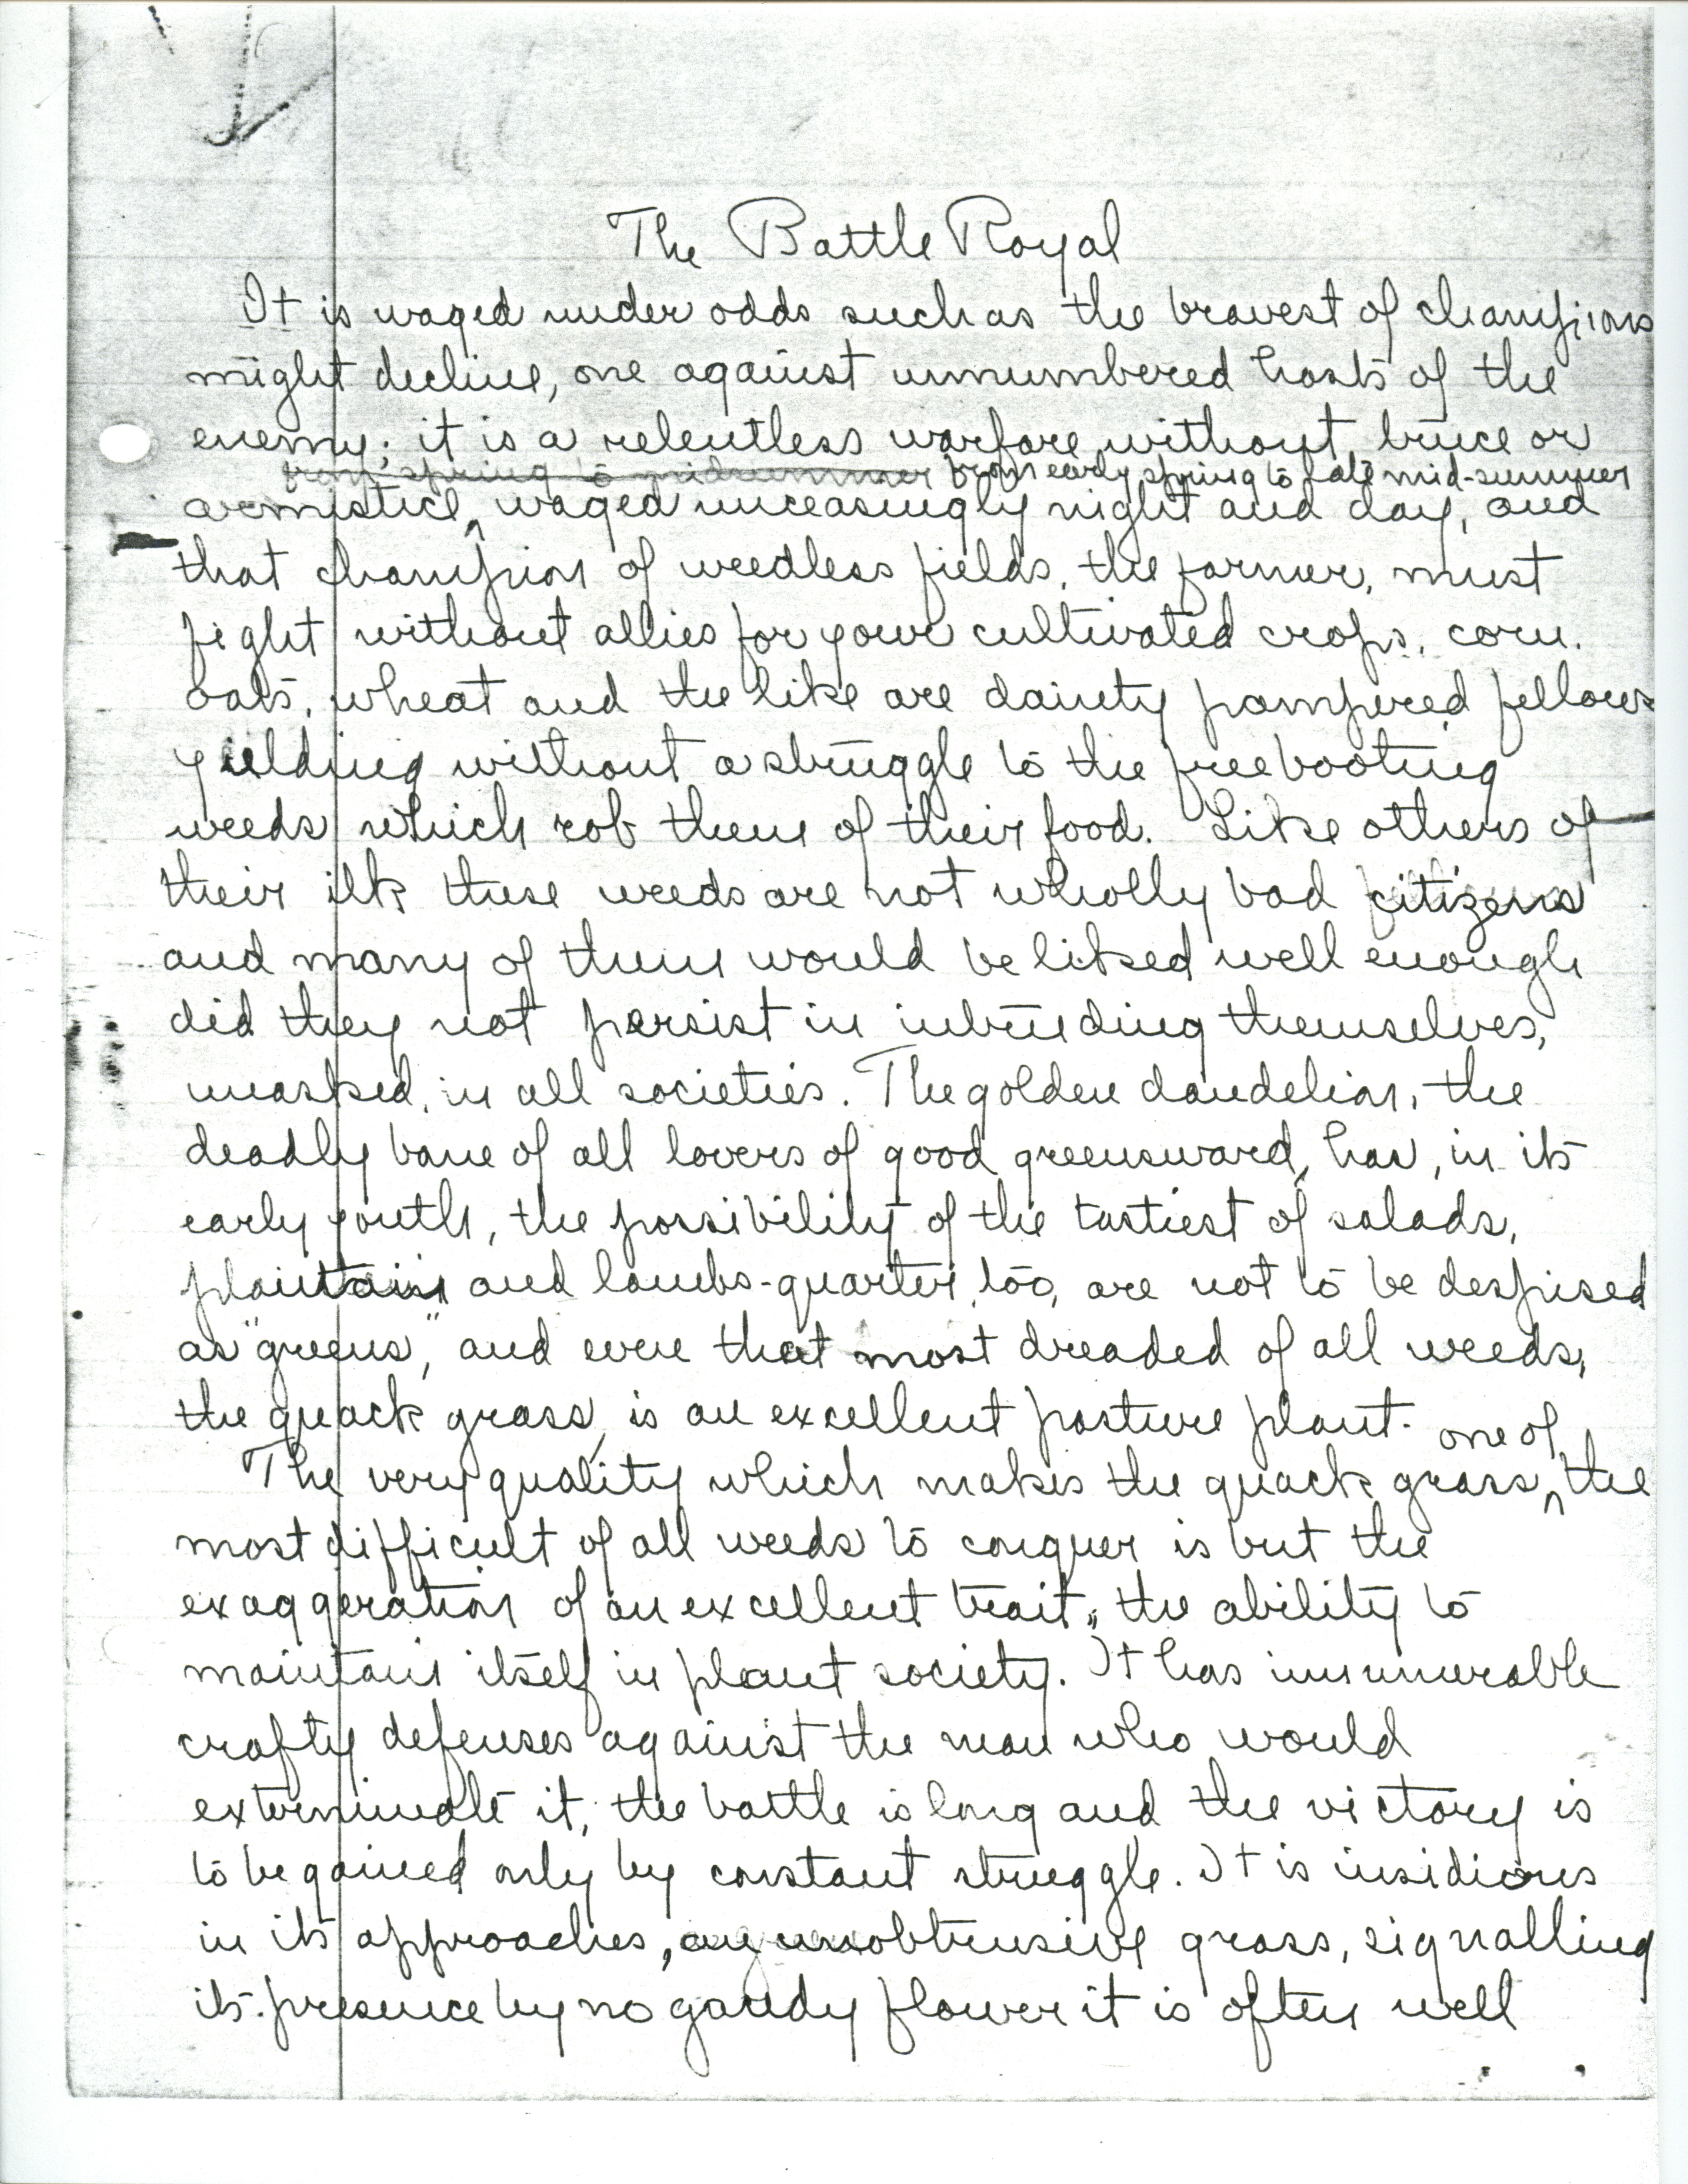 The Battle Royal
It is waged under odds such as the bravest of champions
might decline, one against unnumbered hosts of the
enemy; it is a relentless warfare without truce or
from spring to midsummer from early spring to late mid-summer
armistice, waged unceasingly night and day, and
that champion of weedless fields, the farmer, must
fight without allies for your cultivated crops, corn.
oats, wheat and the like are dainty pampered fellows
yielding without a struggle to the freebooting
weeds which rob them of their food. Like others of
their ilk these weeds are not wholly bad citizens
and many of them would be liked well enough
did they not persist in intruding themselves,
unasked, in all societies. The golden dandelion, the
deadly bane of all lovers of good greensward, has, in its
early youth, the possibility of the tastiest of salads,
plantain and lambs-quarter, too, are not to be despised
as "greens," and even that most dreaded of all weeds,
the quack grass, is an excellent pasture plant.
one of
The very quality which makes the quack grass ^ the
most difficult of all weeds to conquer is but the
exaggeration of an excellent trait, the ability to
maintain itself in plant society. It has innumerable
crafty defenses against the man who would
exterminate it; the battle is long and the victory is
to be gained only by constant struggle. It is insidious
in its approaches, an unobtrusive grass, signalling
its presence by no gaudy flower it is often well